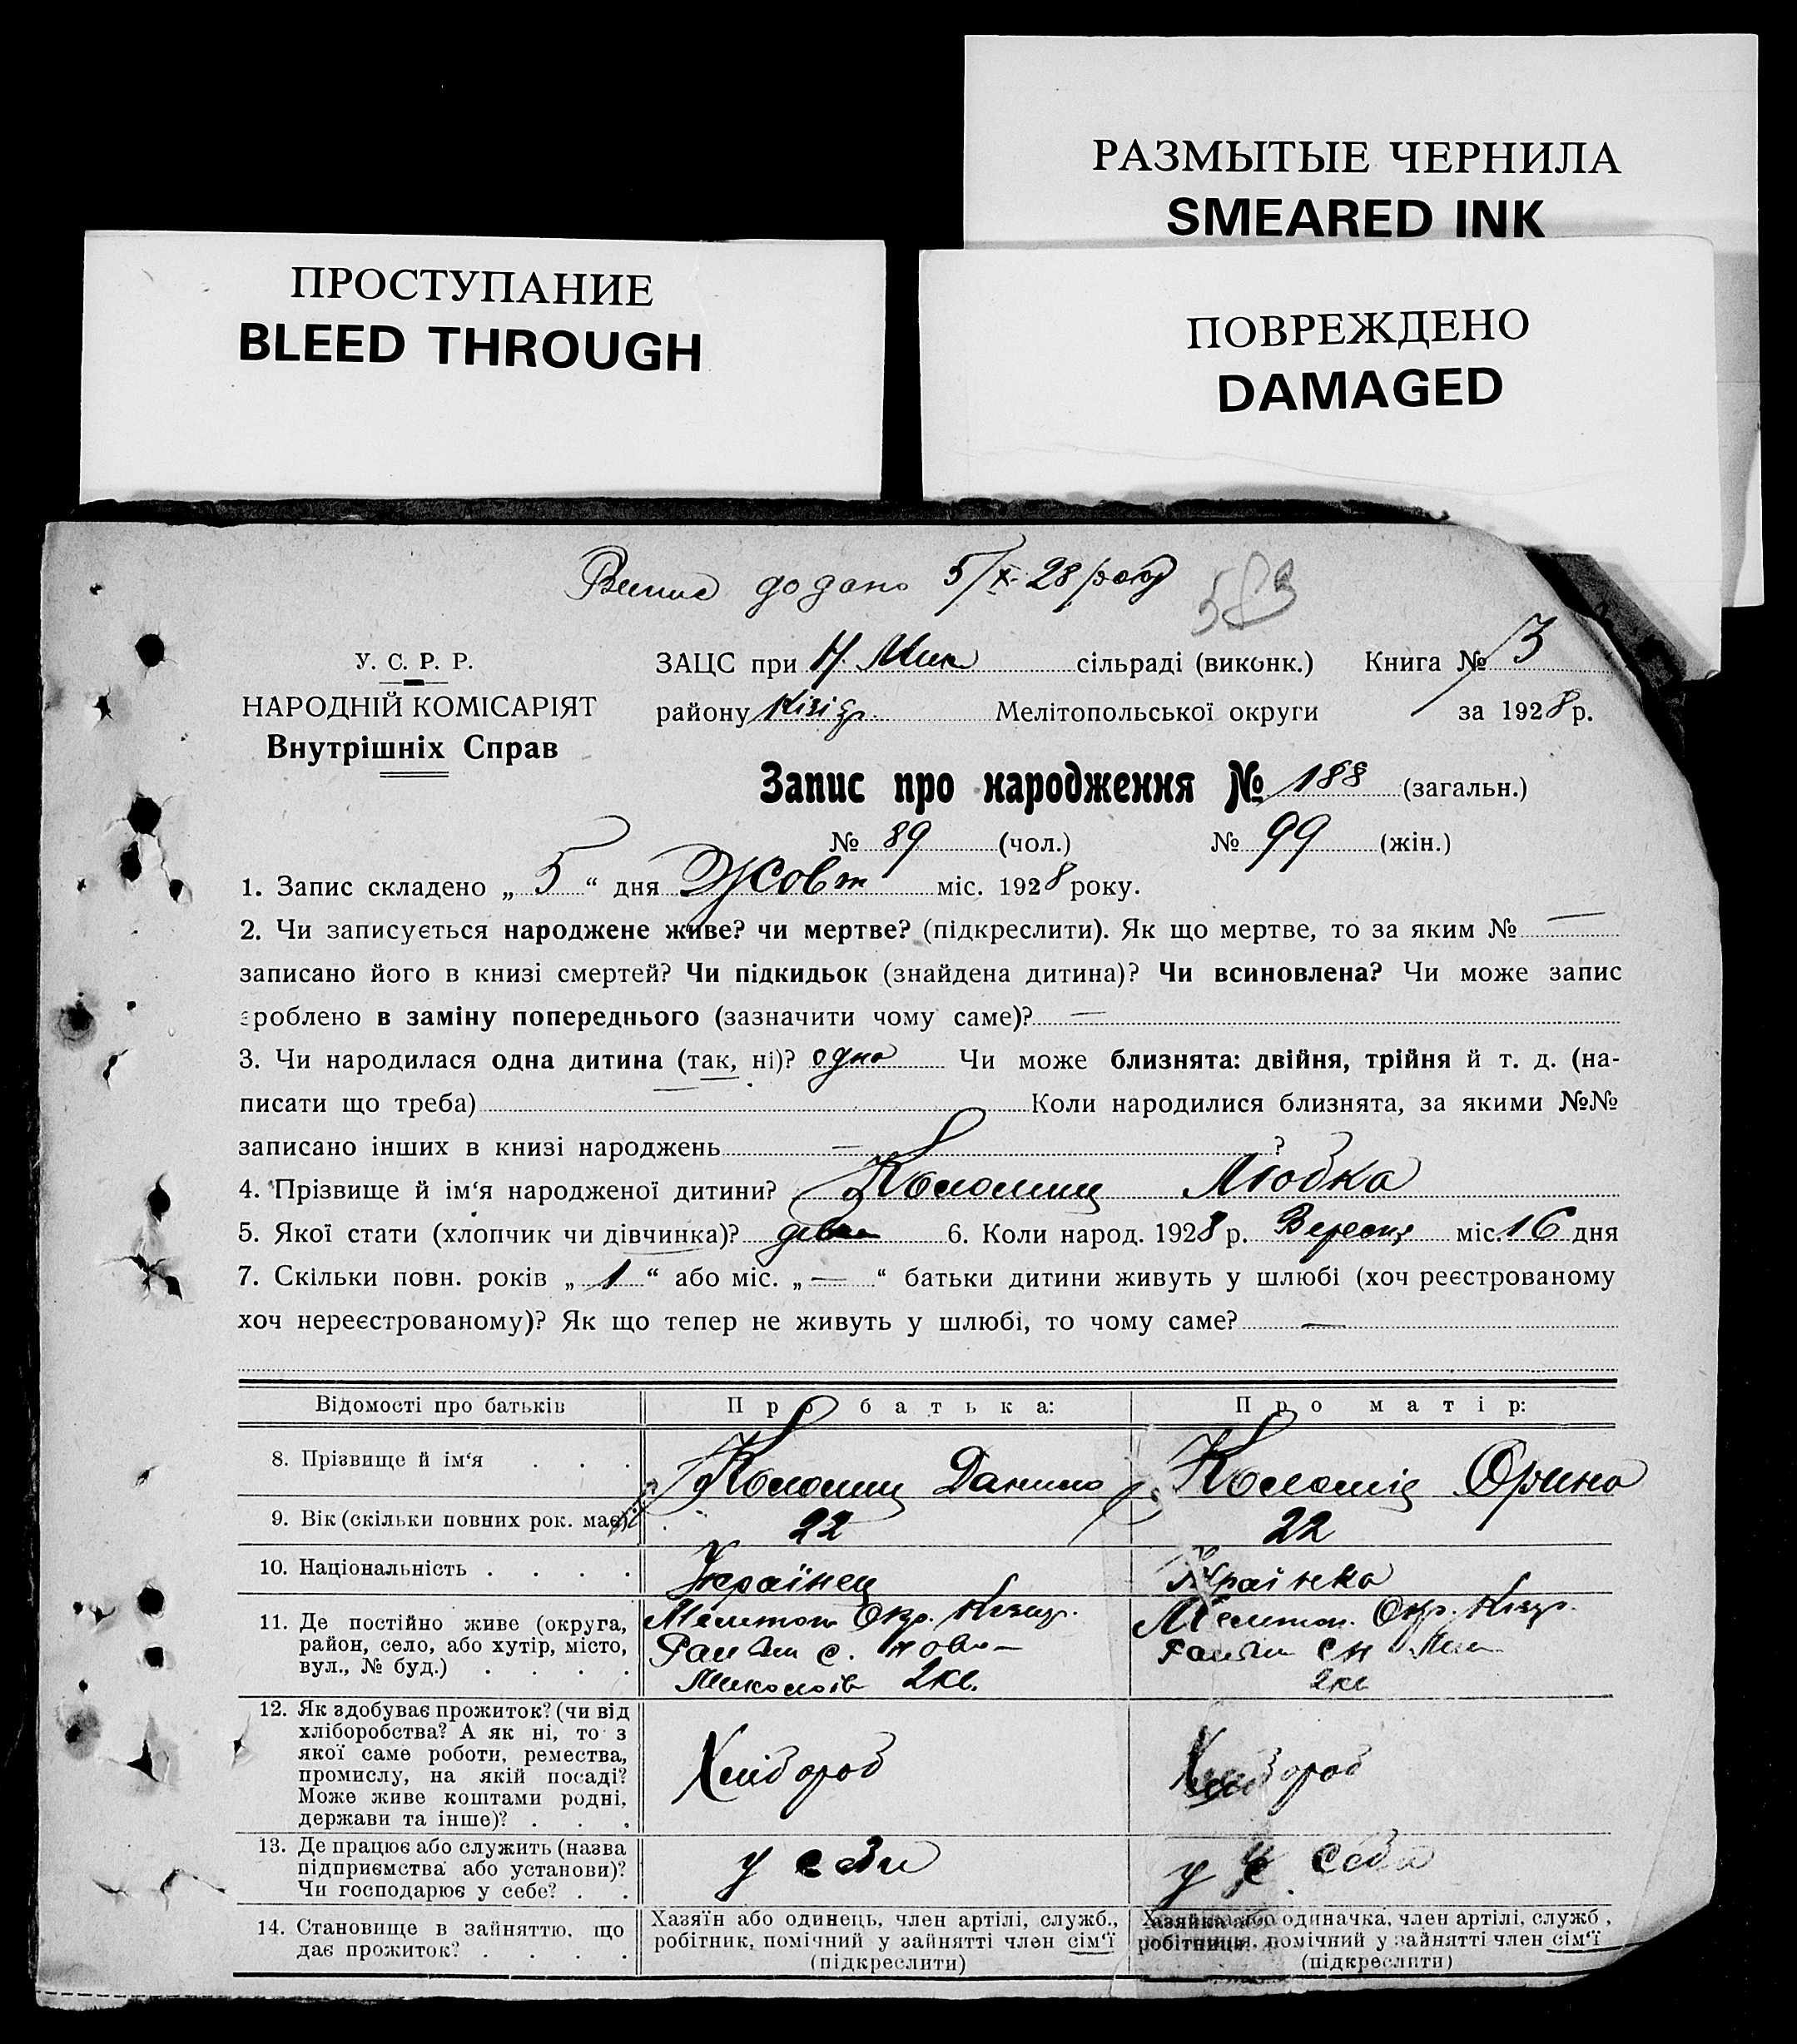 РАЗМЫТЫЕ ЧЕРНИЛА
SMEARED INK
ПРОСТУПАНИЕ
BLEED THROUGH
ПОВРЕЖДЕНО
DAMAGED
додано 5/X-28 року 583
У. С. Р. Р.
НАРОДНІЙ КОМІСАРІЯТ
Внутрішніх Справ
ЗАЦС при Н. Мик сільраді (виконк.) Книга № 3
району Мелітопольської округи за 1928 р.
Запис про народження № 188 (загальн.)
№ 89 (чол.) № 99 (жін.)
1. Запис складено „ 5 “ дня Жовт міс. 1928 року.
2. Чи записується народжене живе? чи мертве? (підкреслити). Як що мертве, то за яким № —
записано його в книзі смертей? Чи підкидьок (знайдена дитина)? Чи всиновлена? Чи може запис
зроблено в заміну попереднього (зазначити чому саме)? —
3. Чи народилася одна дитина (так, ні)? одна Чи може близнята: двійня, трійня й т. д. (на-
писати що треба) — Коли народилися близнята, за якими №№
записано інших в книзі народжень — ?
4. Прізвище й ім‘я народженої дитини? Коломиц Любка
5. Якої стати (хлопчик чи дівчинка)? 6. Коли народ. 1928 р. Вересня міс. 16 дня
7. Скільки повн. років „ 1 “ або міс. „ — “ батьки дитини живуть у шлюбі (хоч реєстрованому
хоч нереєстрованому)? Як що тепер не живуть у шлюбі, то чому саме? —
Відомості про батьків Про батька: Про матір:
8. Прізвище й ім‘я . . . Коломиц Данило Коломіц Орина
9. Вік (скільки повних рок. має) 22 22
10. Національність . . . . Українец Українка
11. Де постійно живе (округа, Мелитоп Окр. Мелитоп. Окр.
район, село, або хутір, місто, с. Ново-
вул., № буд.) . . . . Миколаїв 2кв. 2кв
12. Як здобуває прожиток? (чи від
хліборобства? А як ні, то з
якої саме роботи, ремества,
промислу, на якій посаді? Хлібороб Хлібороб
Може живе коштами родні,
держави та інше)? . . .
13. Де працює або служить (назва
підприємства або установи)? у себи у себи
Чи господарює у себе? . .
14. Становище в зайняттю, що Хазяїн або одинець, член артілі, служб., Хазяйка або одиначка, член артілі, служб.,
дає прожиток? . . . . робітник, помічний у зайнятті член сім‘ї робітниця, помічний у зайнятті член сім‘ї
(підкреслити) (підкреслити)